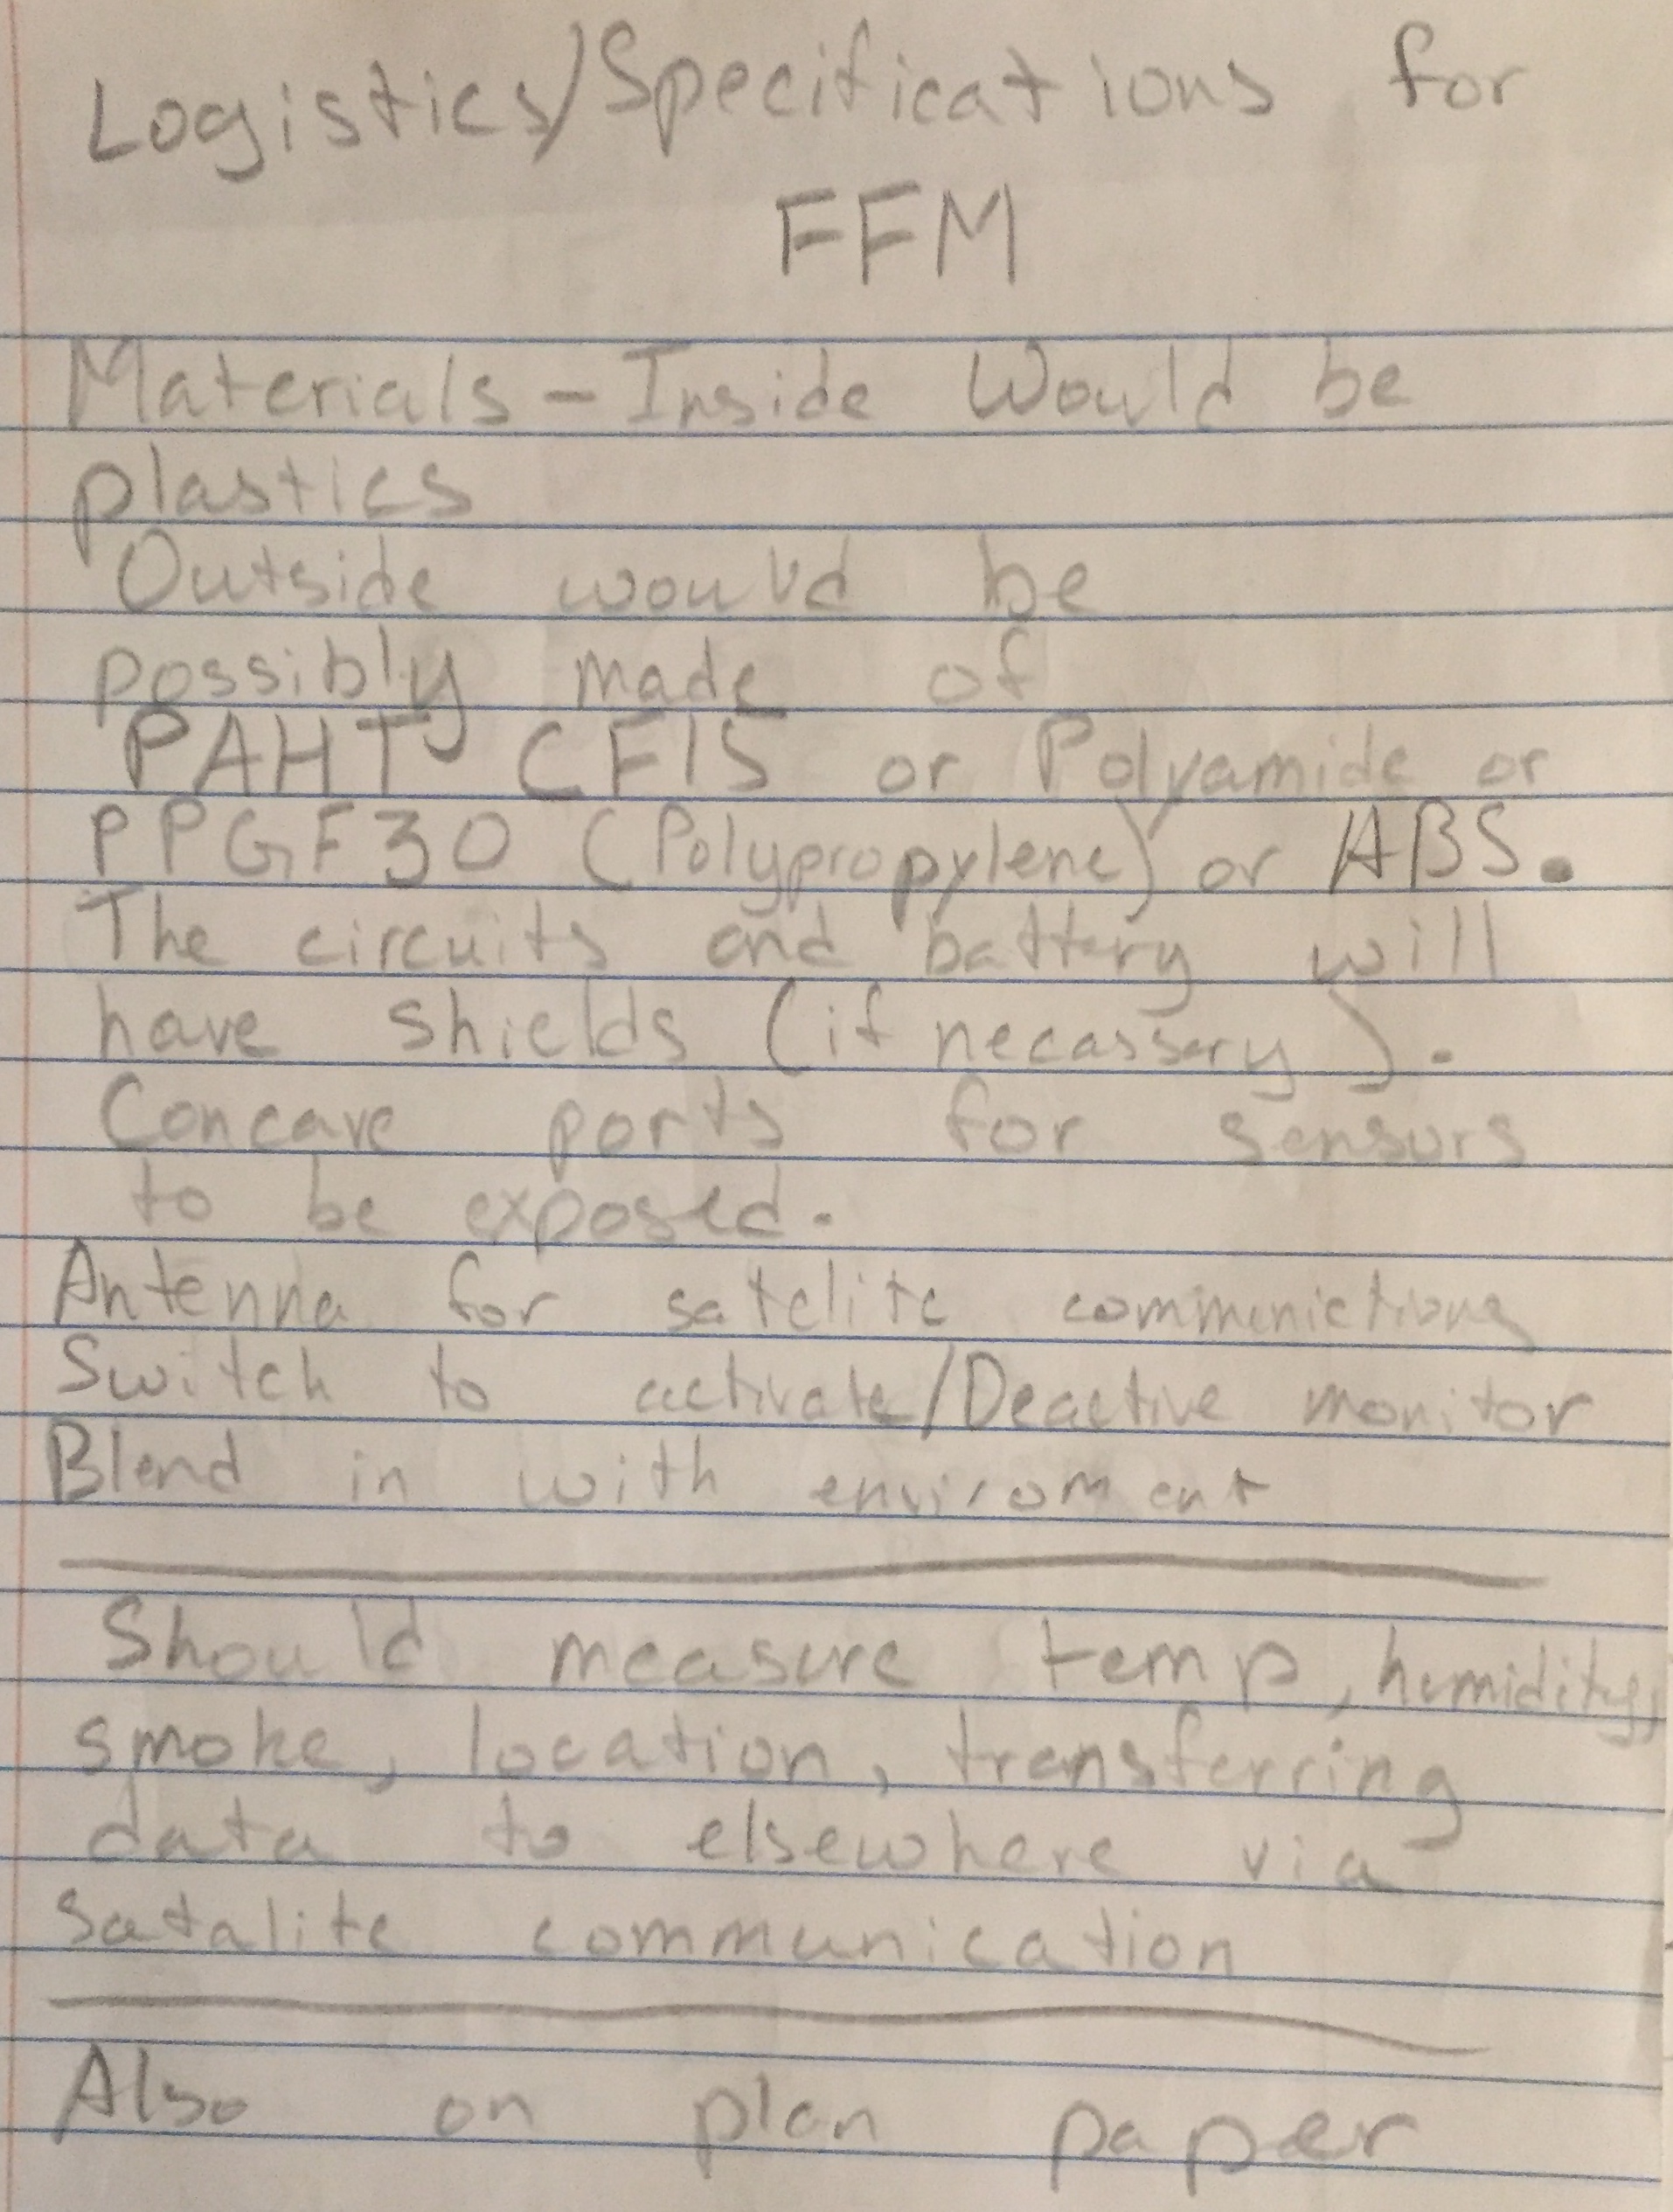 Logistics/Specifications for
FFM
Materials - Inside Would be
plastics
Outside would be
possibly made of
PAHT CF15 or Polyamide or
PPGF30 (Polypropylene) or ABS.
The circuits and battery will
have shields (if necassary).
Concave ports for sensors
to be exposed.
Antenna for satelite communictions
Switch to activate/Deactive monitor
Blend in with enviroment
Should measure temp, humidity,
smoke, location, transferring
data to elsewhere via
satalite communication
Also on plan paper